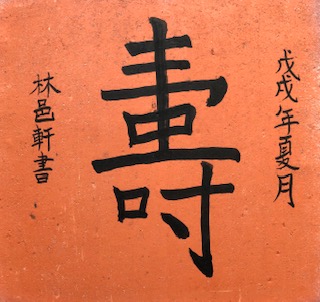 戊戌年夏月
壽
林邑軒書